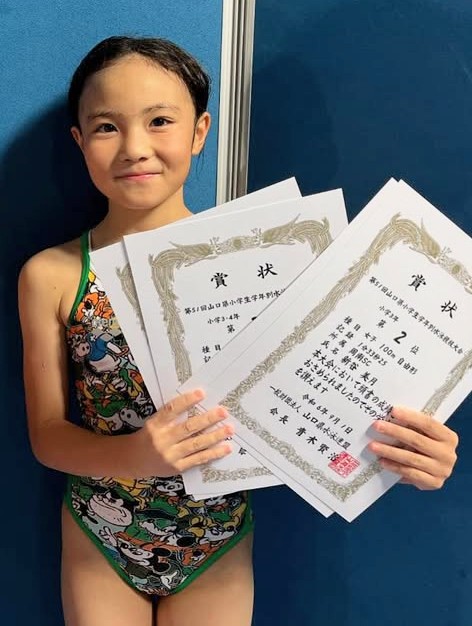 賞状
第51回山口県小学生学年別水泳
小学3・4年
第
種目
賞状
第51回山口県小学生学年別水泳競技大会
小学3年 第2位
種目 女子 100m 自由形
記録 1分33秒25
所属 周南SC
氏名
本大会において頭書の成績
をおさめられましたのでその
を讃えます
令和6年7月1日
一般財団法人 山口県水泳連盟
会長 青木賢治